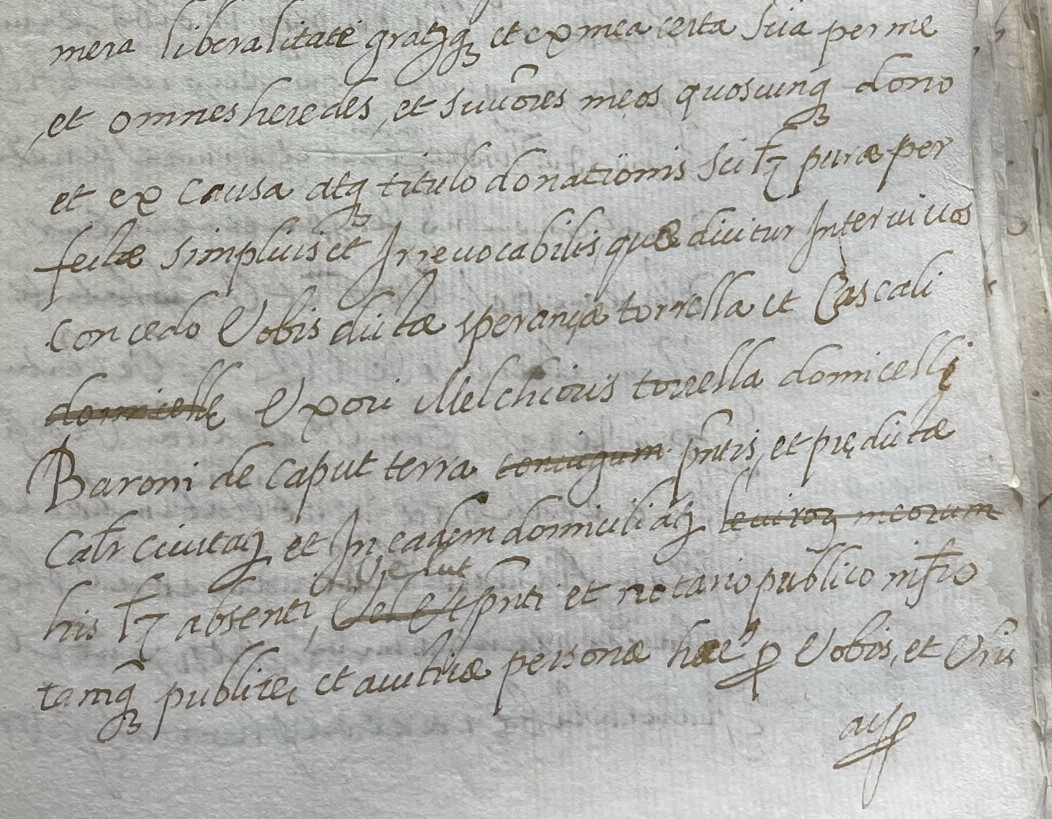 mera liberalitate gratiaq₃ et ex mea certa Sīia per me
et omnes heredes, et Suc̄ores meos quoscunq₃ dono
et ex causa atq₃ titulo donationis Sciłꝫ puræ per
fectæ simplicis et Irrevocabilis quæ dicitur Intervivos
concedo Vobis dictæ speranzæ torrella et Cascali
domicelle Uxori Melchioris torrella domicelli
Baroni de Caput terra coniugum pn̄tis, et prędictæ
Calr̄ civitaꝫ et In eadem domiciliaꝫ levirorꝫ meorum
his łꝫ absenti, Velut
Vel Ut pn̄ti et notario publico inf̄rio
tamq₃ publicæ, et autcæ personæ hæc ꝓ Vobis, et Vr̄is
acꝑ